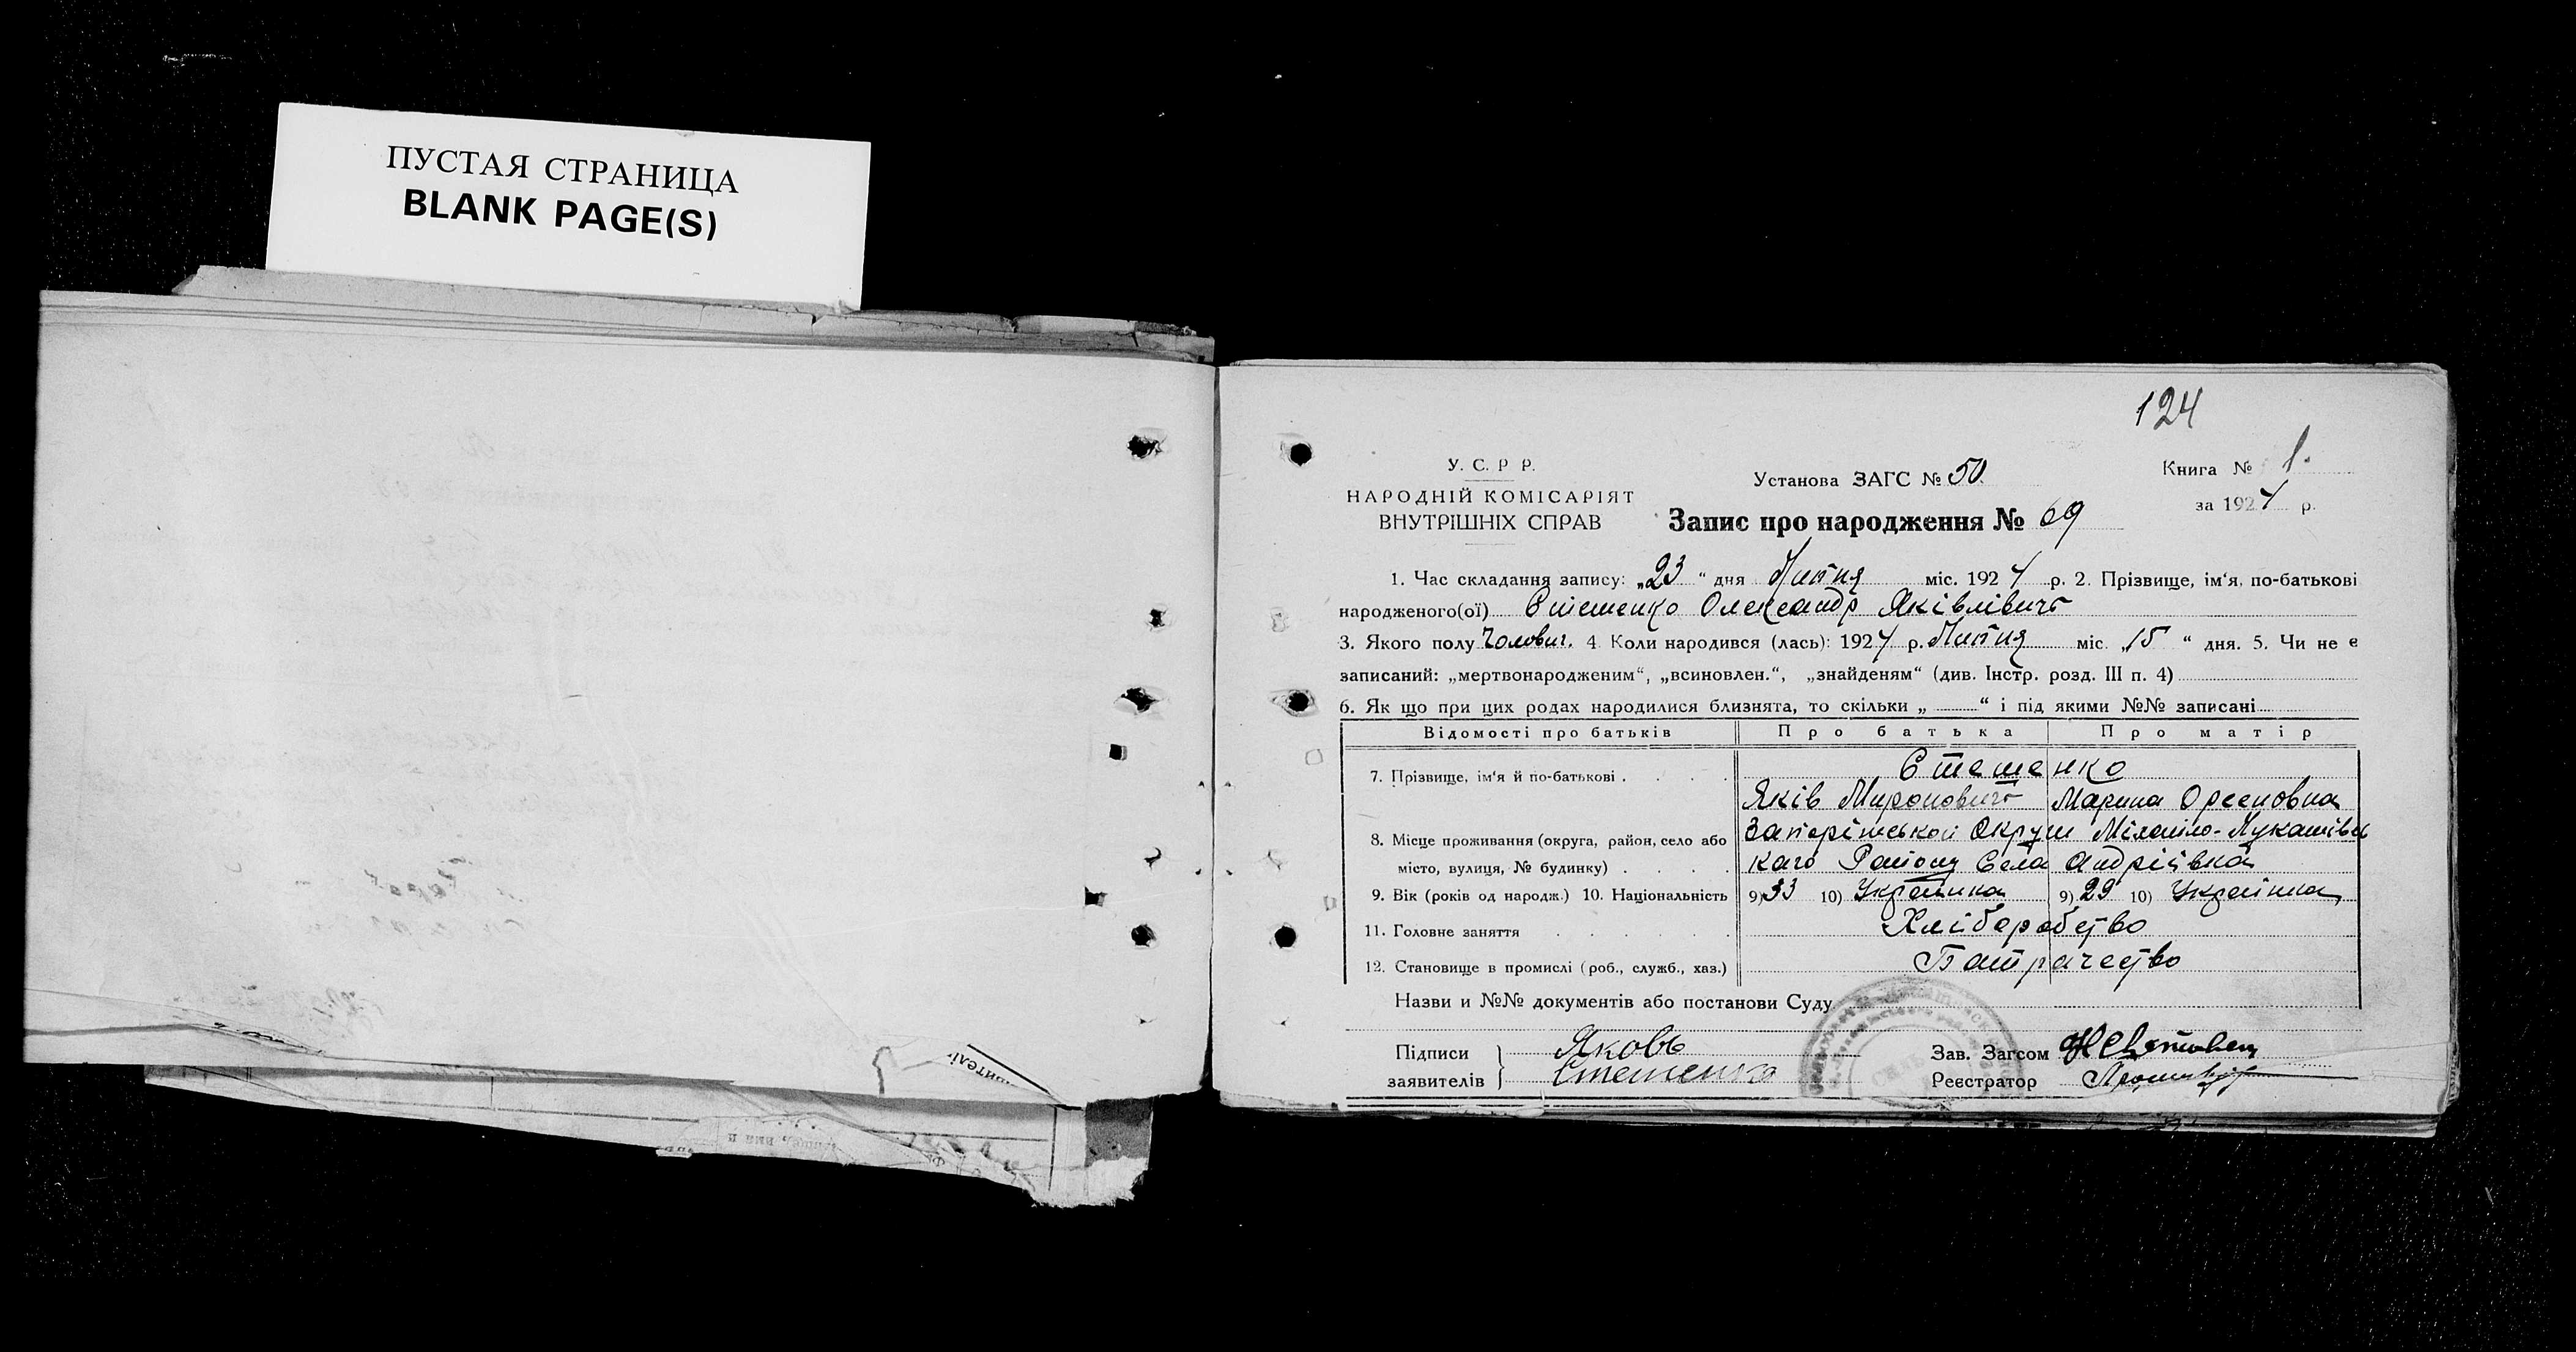 ПУСТАЯ СТРАНИЦА
BLANK PAGE(S)
124
У. С. Р Р.
НАРОДНІЙ КОМІСАРІЯТ
ВНУТРІШНІХ СПРАВ
Установа ЗАГС № 50
Книга № 1.
за 1924 р.
Запис про народження № 69
1. Час складання запису: „23“ дня Липня міс. 1924 р. 2. Прізвище, ім‘я, по-батькові
народженого(ої) Стешенко Олександр Яківлівичь
3. Якого полу Чолович. 4. Коли народився (лась): 1924 р. Липня міс. „15“ дня. 5. Чи не є
записаний: „мертвонародженим“, „всиновлен.“, „знайденям“ (див. Інстр. розд. III п. 4)
6. Як що при цих родах народилися близнята, то скільки „ “ і під якими №№ записані
Відомості про батьків Про батька Про матір
7. Прізвище, ім‘я й по-батькові . Стешенко
Яків Миронович Марина Орсеновна
8. Місце проживання (округа, район, село або Запоріжськой Округи Міхайло-Лукашівсь
місто, вулиця, № будинку) . каго Району Села Андріівка
9. Вік (років од народж.) 10. Національність 9) 33 10) Украинка 9) 29 10) Украинка
11. Головне заняття Хліборобство
12. Становище в промислі (роб., служб., хаз.) Батрачество
Назви и №№ документів або постанови Суду
Підписи Яковь Зав. Загсом
заявителів Стешенко Реєстратор